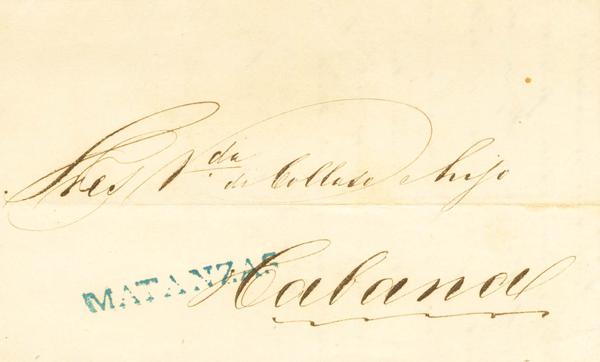 Sres Vda de Collaso e hijo
Habana
MATANZAS